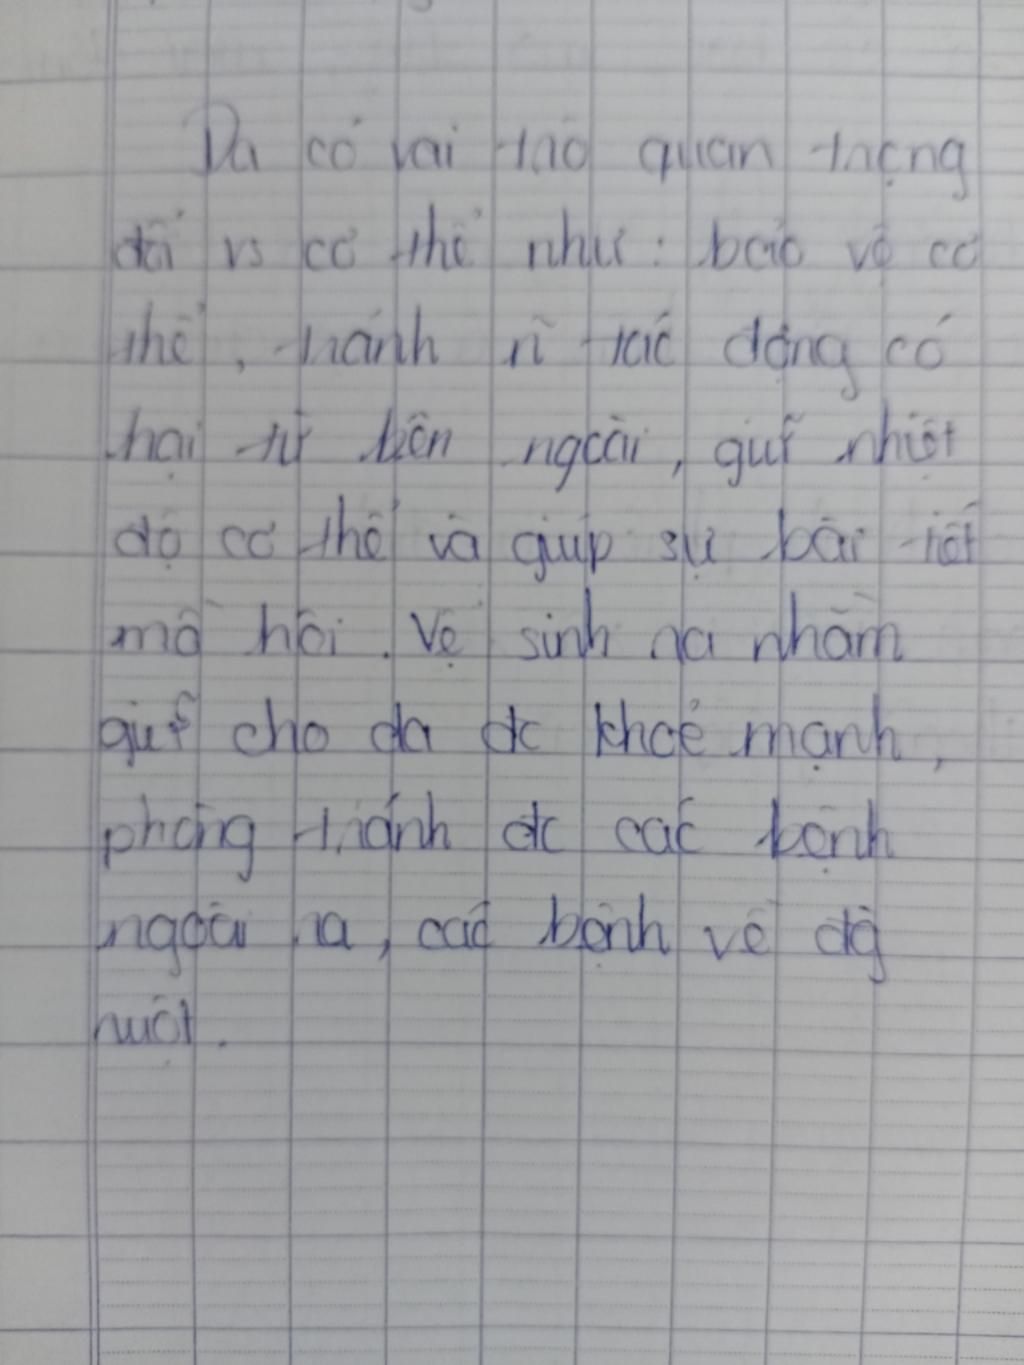 Da có vai trò quan trọng
đối vs cơ thể như: bảo vệ cơ
thể, tránh rỉ tác động có
hại từ bên ngoài, giữ nhiệt
độ cơ thể và giúp sự bài tiết
mồ hôi. Vệ sinh da nhằm
giữ cho da đc khoẻ mạnh,
phòng tránh đc các bệnh
ngoài ra, các bệnh về đg
ruột.